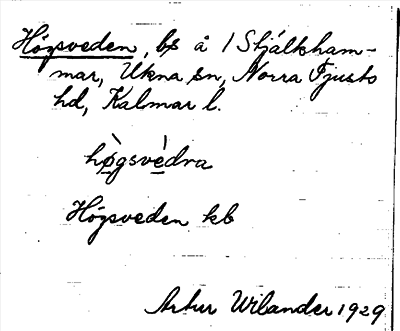 Högsveden, bs å 1 Skjálkham-
mar, Ukna sn, Norra Tjusts
hd, Kalmar l.
hø̀gsvèdra
Högsveden kb
Artur Wilander 1929